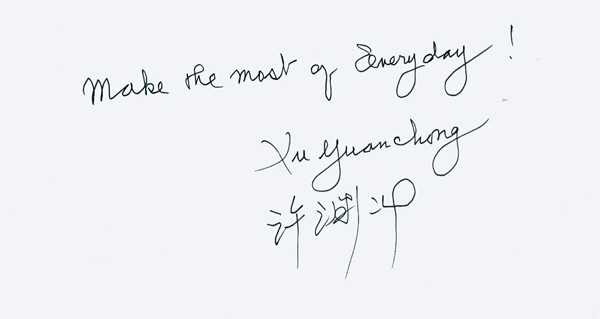 Make the most of Everyday!
Xu Yuanchong
许渊冲